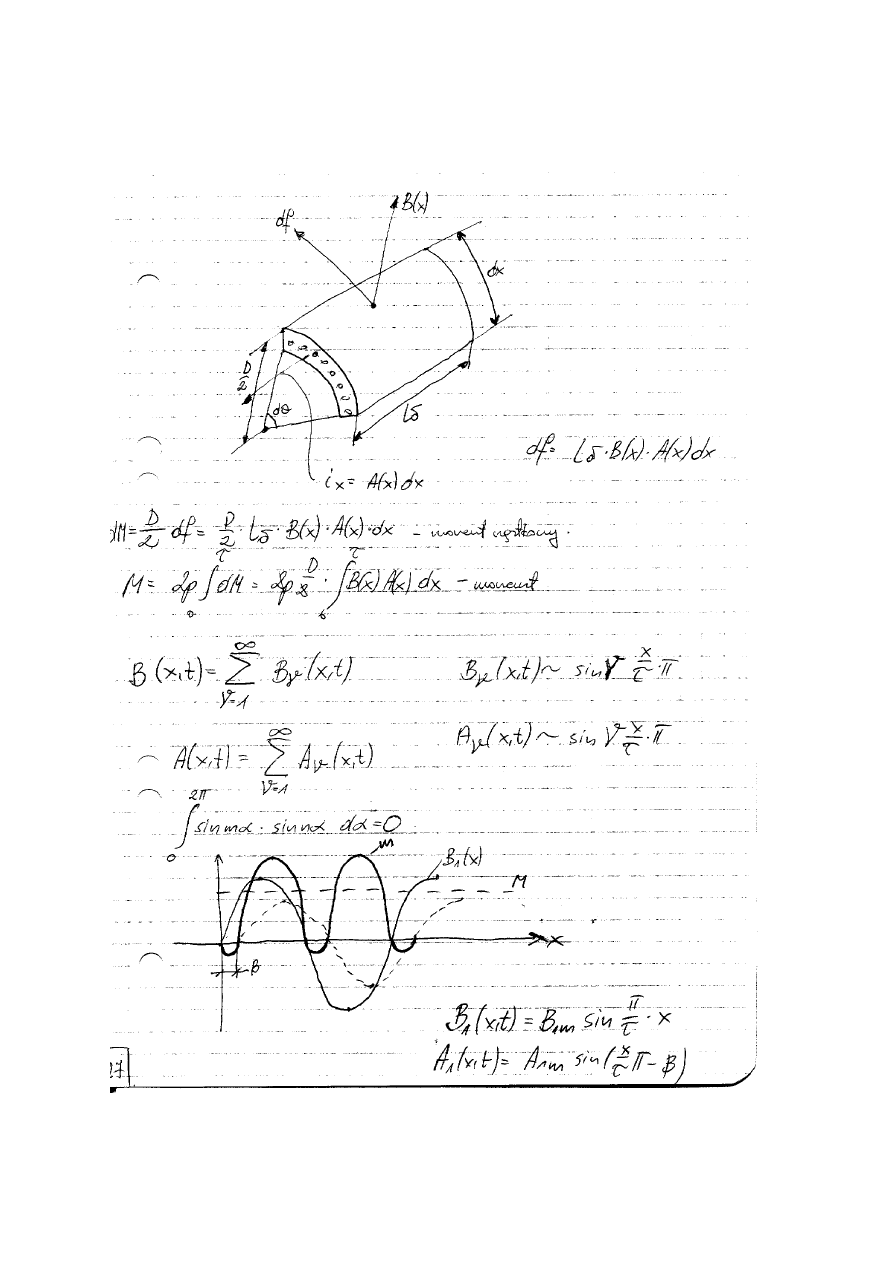 B(x)
df
dx
D/2
dθ
lδ
df = lδ·B(x)·A(x)dx
ix = A(x)dx
dM = D/2 df = D/2 · lδ · B(x)·A(x)·dx – moment
M = 2p ∫₀^τ dM = 2p D/2 · ∫₀^τ B(x)A(x)dx – moment
B(x,t) = ∑_{ν=1}^{∞} Bν(x,t)
Bν(x,t) ~ sin ν x/τ·π
Aν(x,t) ~ sin ν x/τ·π
A(x,t) = ∑_{ν=1}^{∞} Aν(x,t)
∫₀^{2π} sin mα · sin nα dα = 0
m
B₁(x)
M
x
β
B₁(x,t) = B₁m sin π/τ · x
A₁(x,t) = A₁m sin(x/τ π – β)